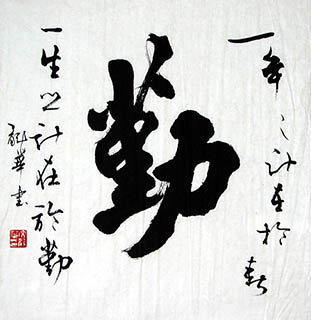 一年之计在於春
勤
一生之计在於勤
龍華書